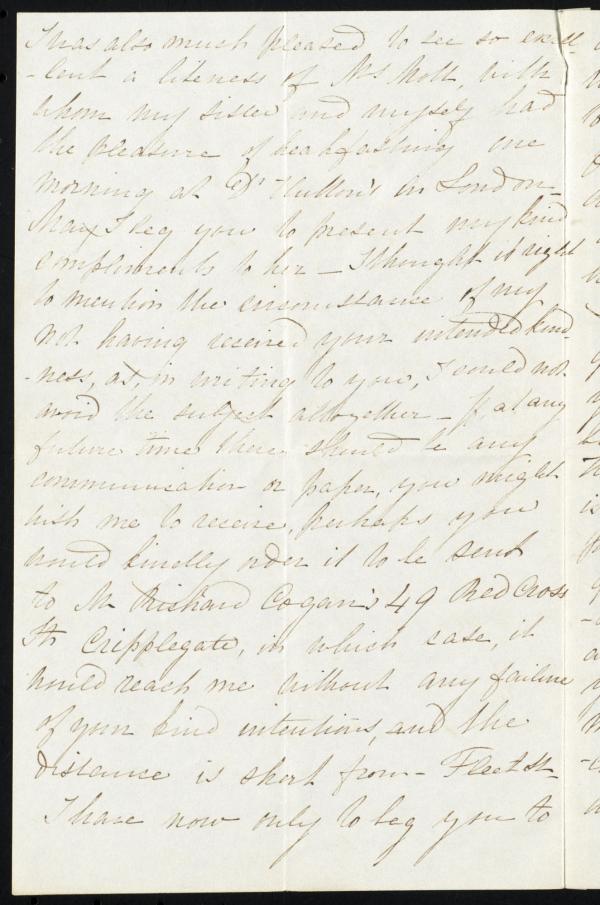 I was also much pleased to see so excel
-lent a likeness of Mrs Mott, with
whom my sister and myself had
the pleasure of breakfasting one
morning at Dr Hutton's in London_
May I beg you to present my kind
compliments to her _ I thought it right
to mention the circumstance of my
not having received your intended kind-
-ness, as, in writing to you, I could not
avoid the subject altogether _ If at any
future time there should be any
communication or paper, you might
wish me to receive, perhaps you
would kindly order it to be sent
to Mr Richard Cogan's 49 Red Cross
St. Cripplegate, in which case, it
would reach me without any failure
of your kind intentions, and the
distance is short from _ Fleet St_
I have now only to beg you to